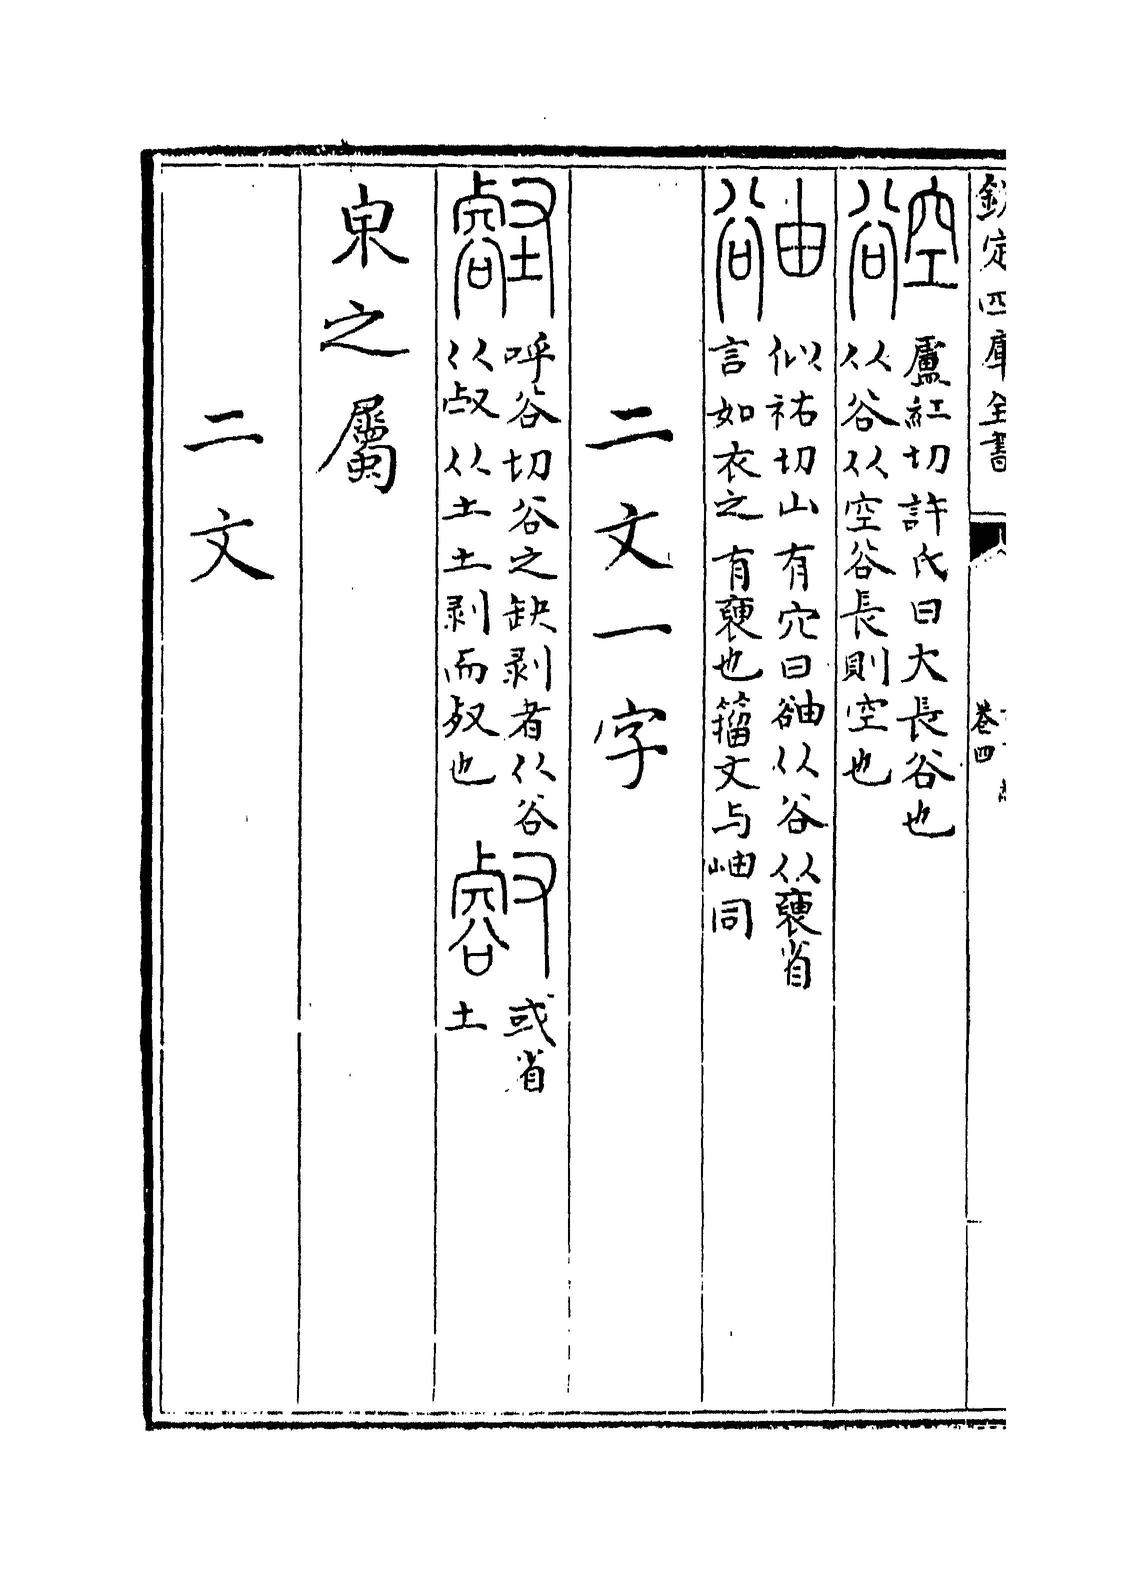 欽定四庫全書
卷四
谾
盧紅切許氏曰大長谷也
从谷从空谷長則空也
似祐切山有穴曰 从谷从褎省
言如衣之有褎也籀文与岫同
二文一字
壑
呼谷切谷之缺剥者从谷
从𣦻从土土剥而 也
㕡
或省
土
泉之屬
二文